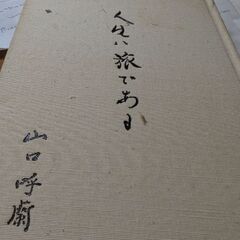 人生は旅である
山口呼蘭